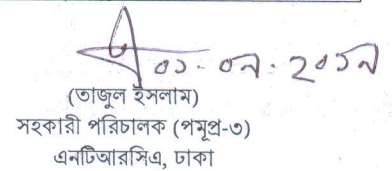 ০১-০৯-২০১৯
(তাজুল ইসলাম)
সহকারী পরিচালক (পমূপ্র-৩)
এনটিআরসিএ, ঢাকা